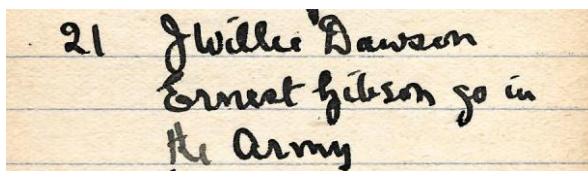 21 J Willie Dawson
Ernest Gibson go in
the Army